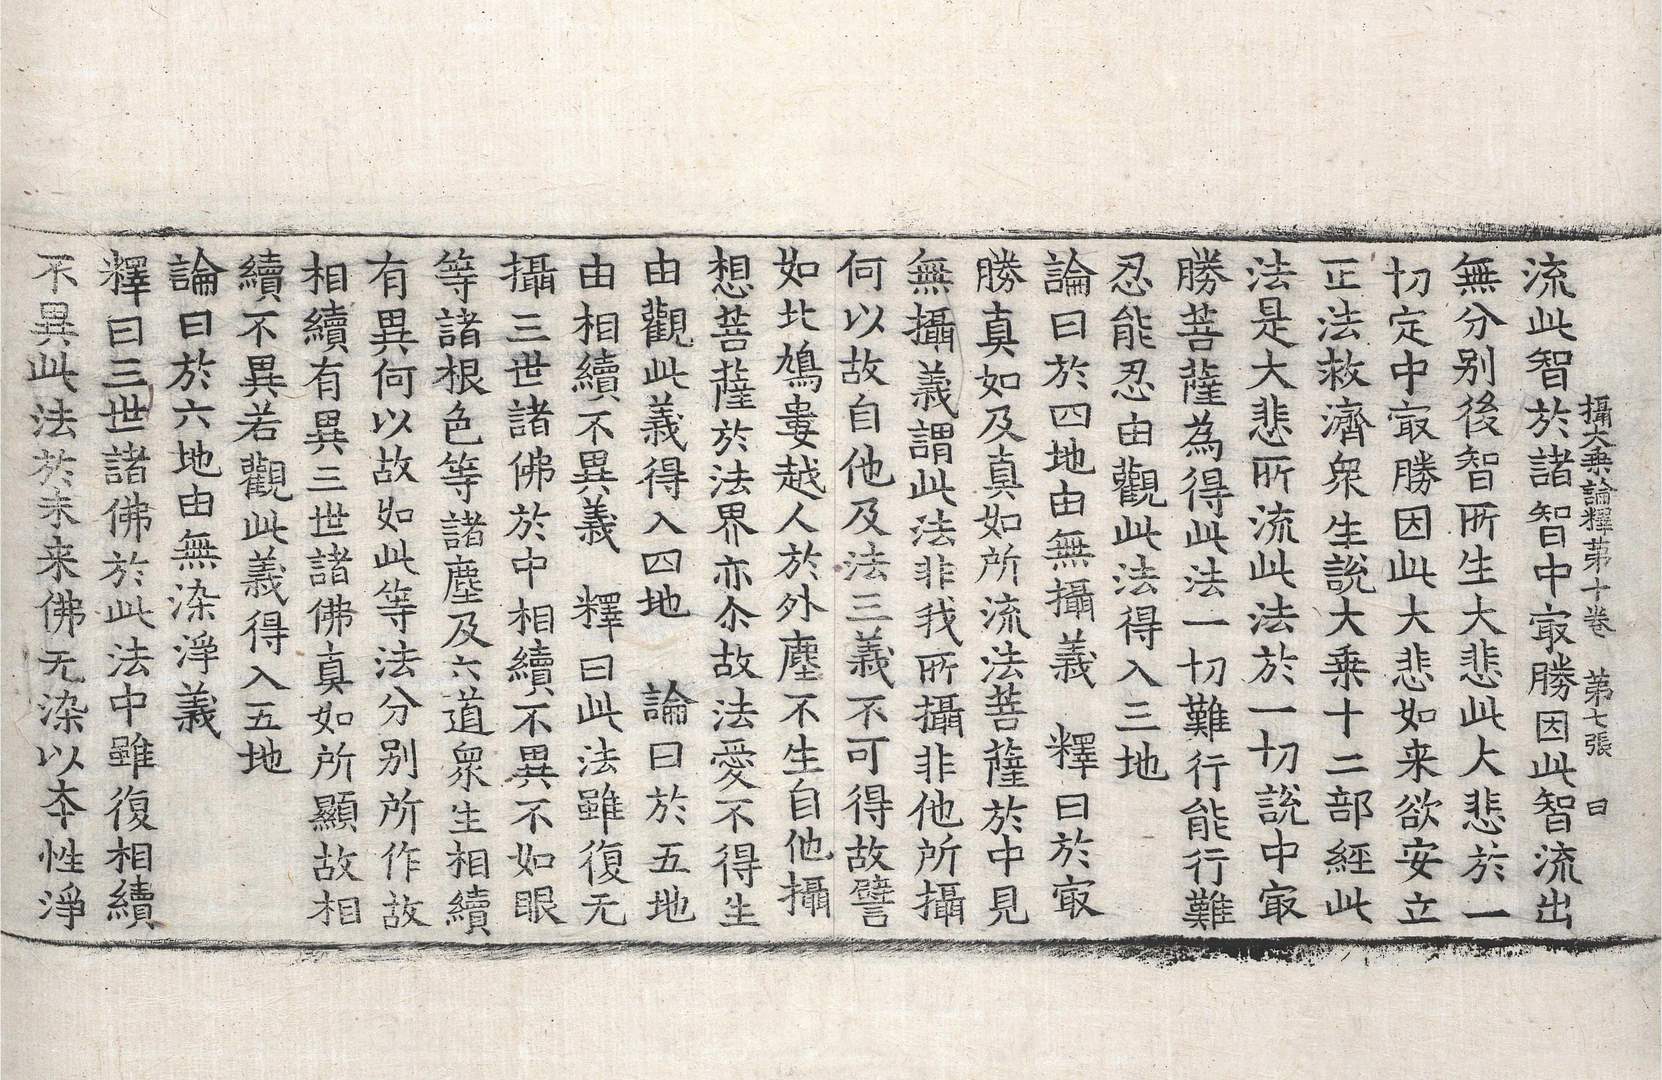 攝大乗論釋第十卷　第七張　日
流此智於諸智中㝡勝因此智流出
無分别後智所生大悲此大悲於一
切定中㝡勝因此大悲如来欲安立
正法救濟衆生說大乗十二部經此
法是大悲所流此法於一切說中㝡
勝菩薩為得此法一切難行能行難
忍能忍由觀此法得入三地
論曰於四地由無攝義　釋曰於㝡
勝真如及真如所流法菩薩於中見
無攝義謂此法非我所攝非他所攝
何以故自他及法三義不可得故譬
如北鳩婁越人於外塵不生自他攝
想菩薩於法界亦尒故法愛不得生
由觀此義得入四地　論曰於五地
由相續不異義　釋曰此法雖復无
攝三世諸佛於中相續不異不如眼
等諸根色等諸塵及六道衆生相續
有異何以故如此等法分别所作故
相續有異三世諸佛真如所顯故相
續不異若觀此義得入五地
論曰於六地由無染淨義
釋曰三世諸佛於此法中雖復相續
不異此法於未来佛无染以本性淨